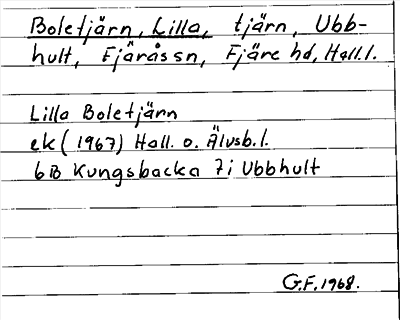 Boletjärn, Lilla, tjärn, Ubb-
hult, Fjärås sn, Fjäre hd, Hall.l.
Lilla Boletjärn
ek (1967) Hall. o. Älvsb.l.
6B Kungsbacka 7i Ubbhult
G.F. 1968.